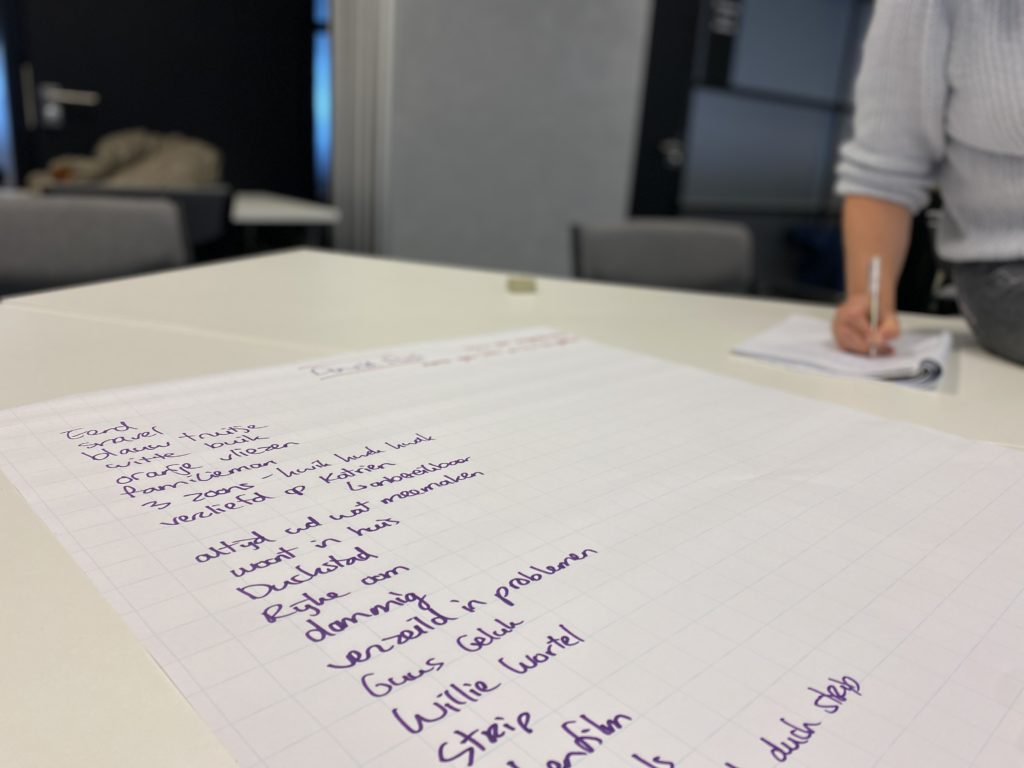 Eend
snavel
blauw truitje
witte buik
oranje vliezen
familieman
3 zoons - kwik kwek kwak
verliefd op Katrien
onbereikbaar
altijd wel wat meemaken
woont in huis
Duckstad
Rijke oom
dommig
verzeild in problemen
Guus Geluk
Willie Wortel
Strip
enfilm
duck strip